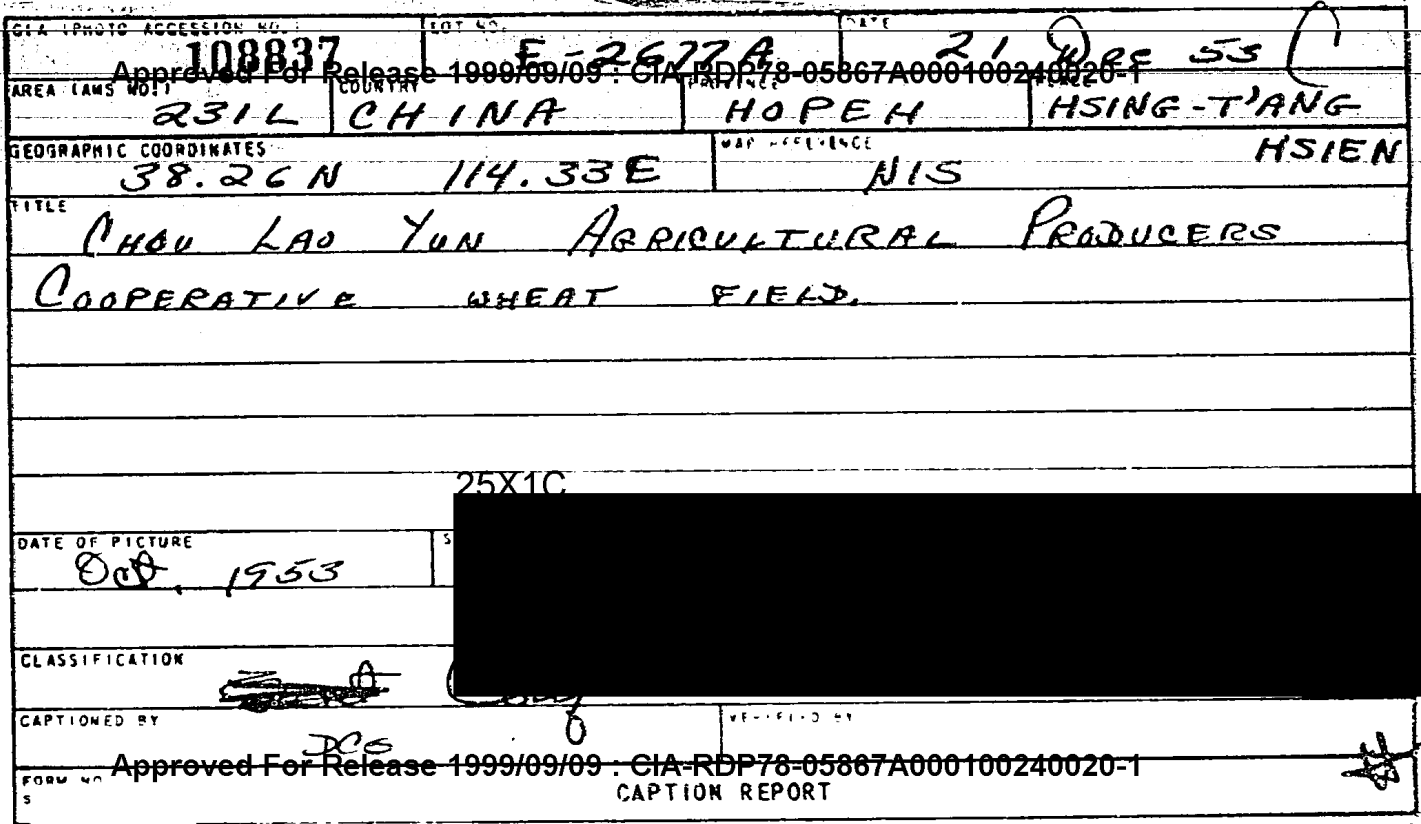 CIA (PHOTO ACCESSION NO.) LOT NO. DATE
108837 E-2677A 21 Dec 53 C
Approved For Release 1999/09/09 : CIA-RDP78-05867A000100240020-1
AREA (AMS NO.) COUNTRY PROVINCE PLACE
231L CHINA HOPEH HSING-T'ANG
HSIEN
GEOGRAPHIC COORDINATES MAP REFERENCE
38.26 N 114.33 E NIS
TITLE
CHOU LAO YUN AGRICULTURAL PRODUCERS
COOPERATIVE WHEAT FIELD.
25X1C
DATE OF PICTURE S
Oct, 1953
CLASSIFICATION
CAPTIONED BY VERIFIED BY
DCG
Approved For Release 1999/09/09 : CIA-RDP78-05867A000100240020-1
FORM NO.
S CAPTION REPORT